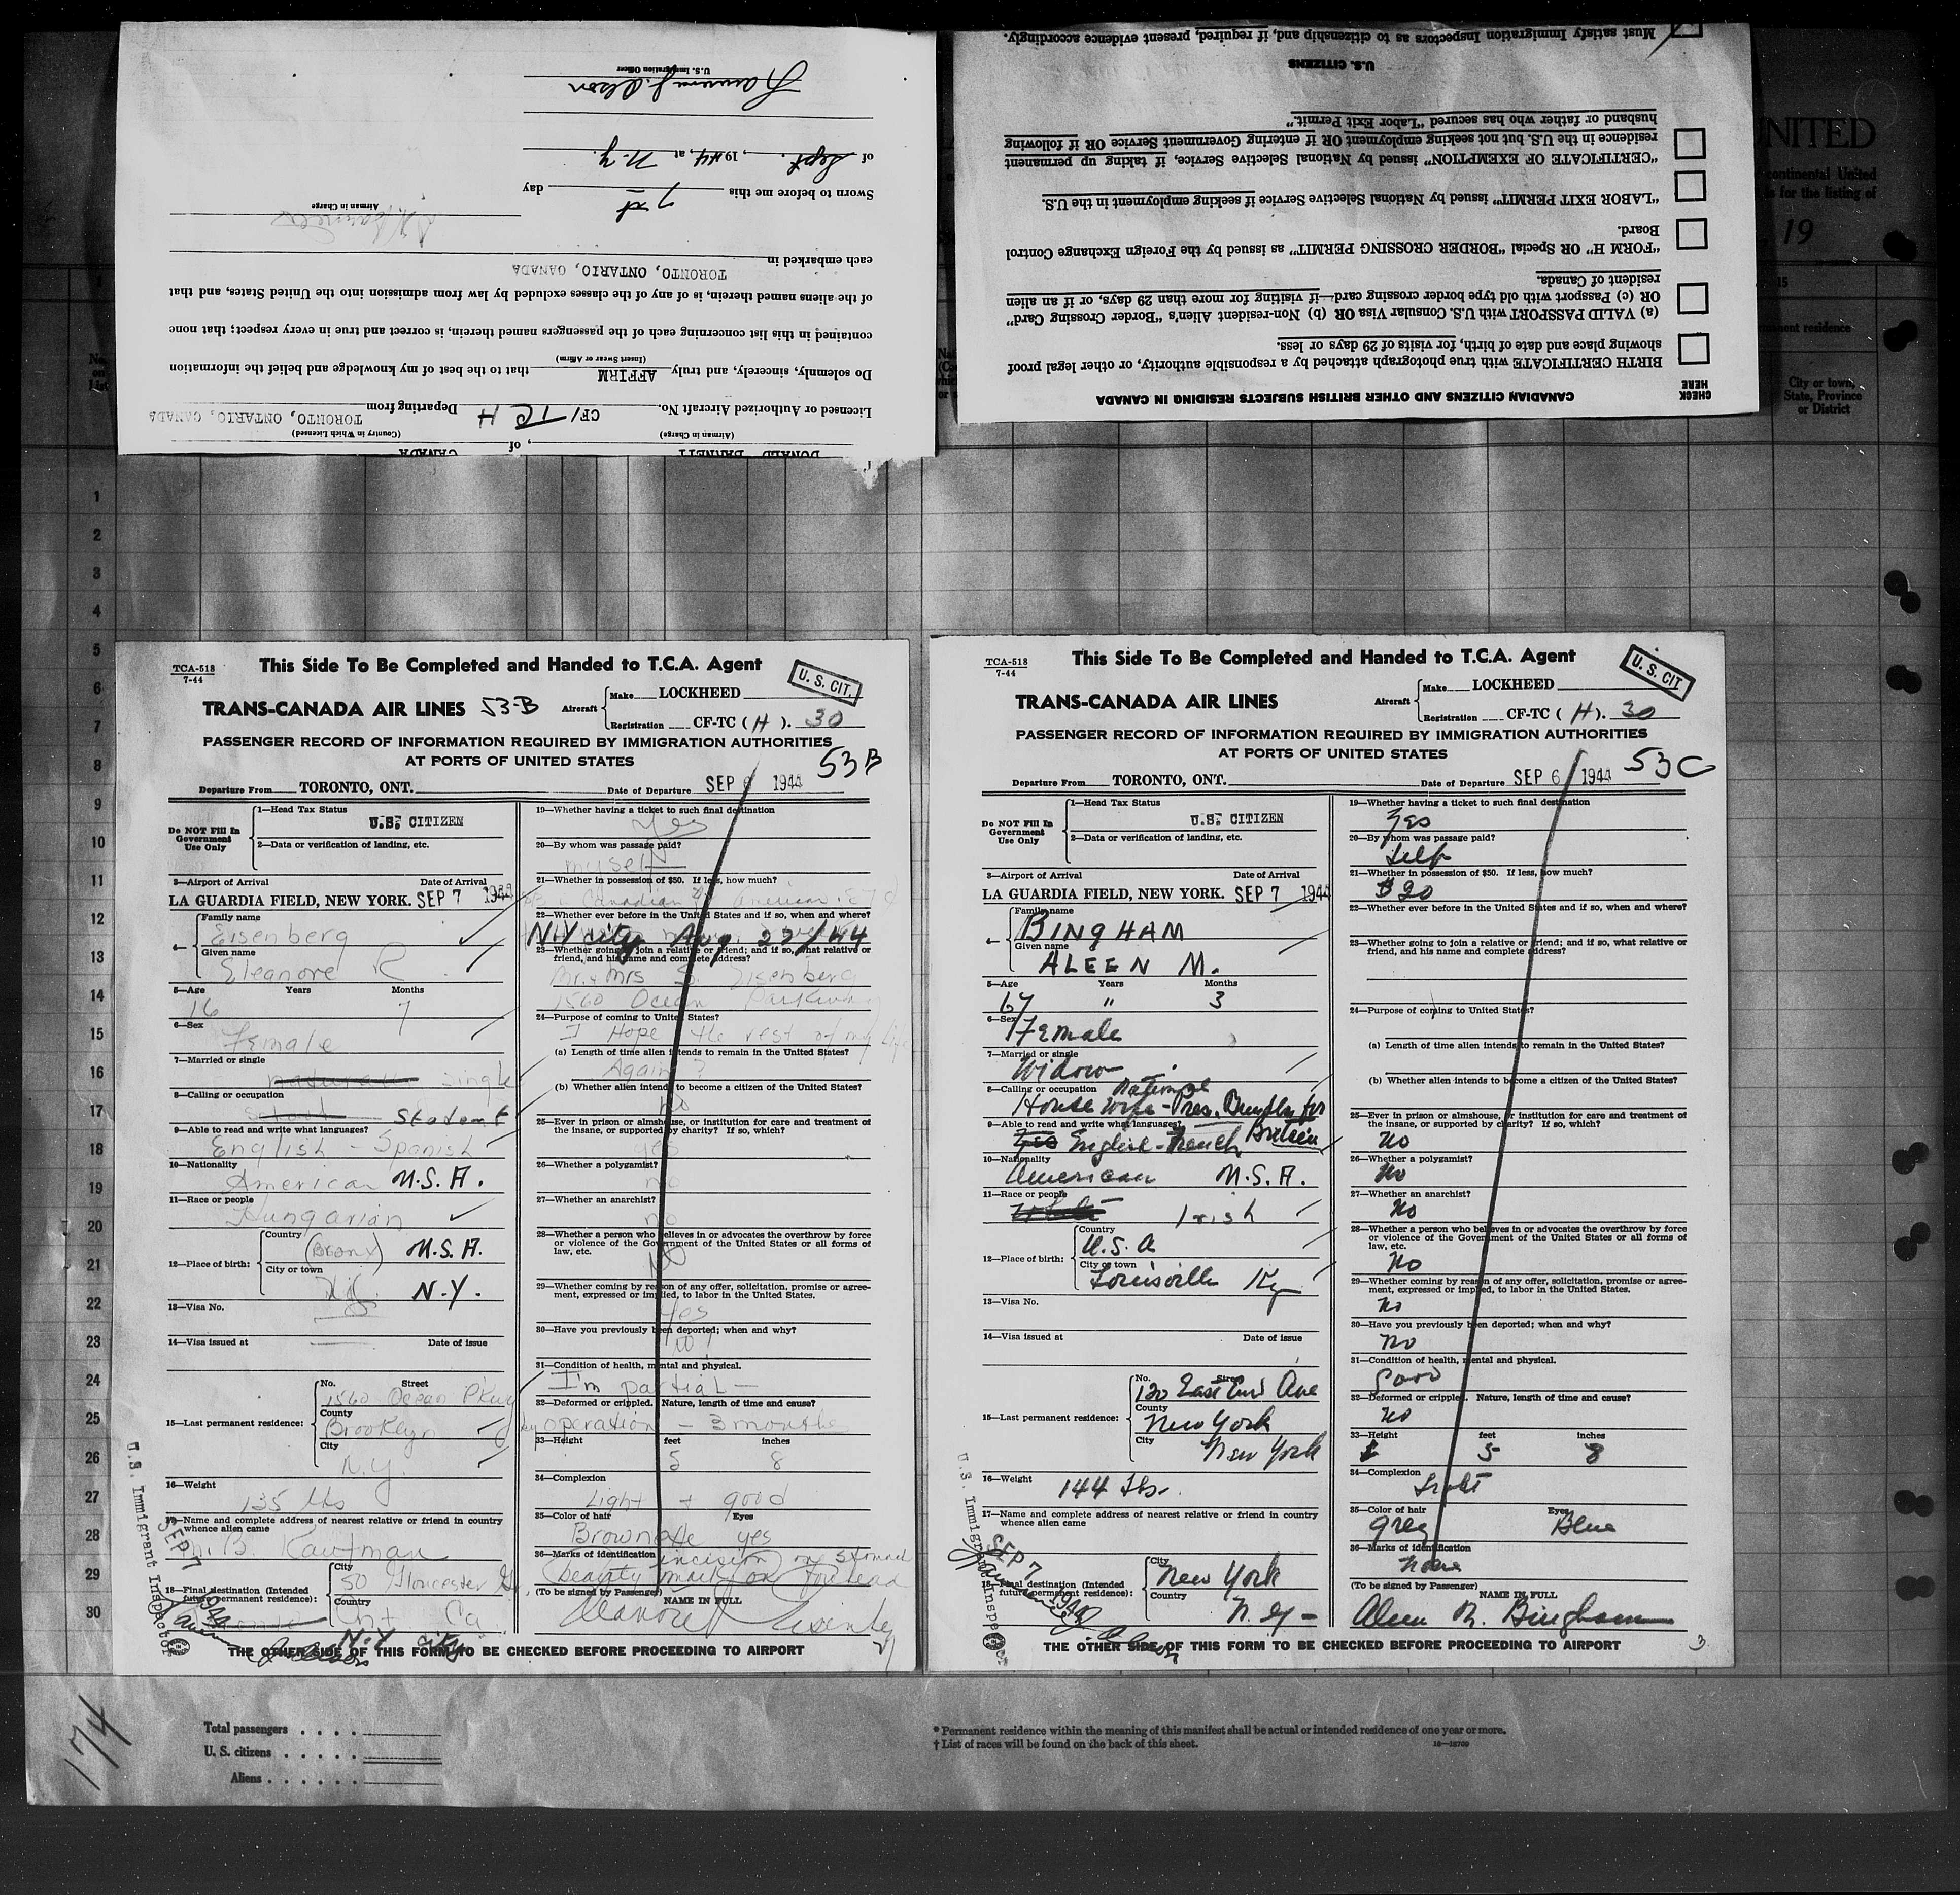 U.S. Immigration Officer
of Sept., 1944, at N.Y.
Sworn to before me this 7 day
Airman in Charge
each embarked in
TORONTO, ONTARIO, CANADA
of the aliens named therein, is of any of the classes excluded by law from admission into the United States, and that
contained in this list concerning each of the passengers named therein, is correct and true in every respect; that none
(Insert Swear or Affirm)
Do solemnly, sincerely, and truly AFFIRM that to the best of my knowledge and belief the information
Licensed or Authorized Aircraft No. CF/TC H Departing from TORONTO, ONTARIO, CANADA
(Airman in Charge) (Country in Which Licensed)
DONALD BARNETT, of CANADA
Must satisfy Immigration Inspectors as to citizenship and, if required, present evidence accordingly.
U.S. CITIZENS
husband or father who has secured "Labor Exit Permit."
residence in the U.S. but not seeking employment OR if entering Government Service OR if following
"CERTIFICATE OF EXEMPTION" issued by National Selective Service, if taking up permanent
"LABOR EXIT PERMIT" issued by National Selective Service if seeking employment in the U.S.
Board.
"FORM H" OR Special "BORDER CROSSING PERMIT" as issued by the Foreign Exchange Control
resident of Canada.
OR (c) Passport with old type border crossing card—if visiting for more than 29 days, or if an alien
(a) VALID PASSPORT with U.S. Consular Visa OR (b) Non-resident Alien's "Border Crossing Card"
showing place and date of birth, for visits of 29 days or less.
BIRTH CERTIFICATE with true photograph attached by a responsible authority, or other legal proof
CHECK HERE
CANADIAN CITIZENS AND OTHER BRITISH SUBJECTS RESIDING IN CANADA
NITED
continental United
s for the listing of
19
15
City or town,
State, Province
or District
1
2
3
4
5
6
7
8
9
10
11
12
13
14
15
16
17
18
19
20
21
22
23
24
25
26
27
28
29
30
TCA-518
7-44
This Side To Be Completed and Handed to T.C.A. Agent
U. S. CIT.
TRANS-CANADA AIR LINES 53-B
Aircraft Make LOCKHEED
Registration CF-TC (H). 30
PASSENGER RECORD OF INFORMATION REQUIRED BY IMMIGRATION AUTHORITIES
AT PORTS OF UNITED STATES
53B
Departure From TORONTO, ONT. Date of Departure SEP 6 1944
Do NOT Fill In
Government
Use Only
1—Head Tax Status
U.S. CITIZEN
2—Data or verification of landing, etc.
3—Airport of Arrival Date of Arrival
LA GUARDIA FIELD, NEW YORK. SEP 7 1944
4— Family name
Eisenberg
Given name
Eleanore R
5—Age Years Months
16 7
6—Sex
Female
7—Married or single
Single
8—Calling or occupation
Student
9—Able to read and write what languages?
English - Spanish
10—Nationality
American U.S.A.
11—Race or people
Hungarian
12—Place of birth: Country
(Bronx) U.S.A.
City or town
N.Y. N.Y.
13—Visa No.
14—Visa issued at Date of issue
15—Last permanent residence: No. Street
1560 Ocean Pkwy
County
Brooklyn
City
N.Y.
16—Weight
135 lbs
17—Name and complete address of nearest relative or friend in country
whence alien came
B. Kaufman
18—Final destination (Intended
future permanent residence): City
50 Gloucester
Country
N.Y. city
19—Whether having a ticket to such final destination
Yes
20—By whom was passage paid?
myself
21—Whether in possession of $50. If less, how much?
22—Whether ever before in the United States and if so, when and where?
N.Y city Aug 23/44
23—Whether going to join a relative or friend; and if so, what relative or
friend, and his name and complete address?
Mr. & Mrs S. Eisenberg
1560 Ocean Parkway
24—Purpose of coming to United States?
I Hope the rest of my life
(a) Length of time alien intends to remain in the United States?
Again?
(b) Whether alien intends to become a citizen of the United States?
no
25—Ever in prison or almshouse, or institution for care and treatment of
the insane, or supported by charity? If so, which?
yes
26—Whether a polygamist?
no
27—Whether an anarchist?
no
28—Whether a person who believes in or advocates the overthrow by force
or violence of the Government of the United States or all forms of
law, etc.
No
29—Whether coming by reason of any offer, solicitation, promise or agree-
ment, expressed or implied, to labor in the United States.
yes
30—Have you previously been deported; when and why?
no!
31—Condition of health, mental and physical.
I'm partial —
32—Deformed or crippled. Nature, length of time and cause?
operation - 3 months
33—Height feet inches
5 8
34—Complexion
Light + good
35—Color of hair Eyes
Brown yes
36—Marks of identification incision on stomach
beauty mark on forhead
(To be signed by Passenger) NAME IN FULL
Eleanore Eisenberg
THE OTHER SIDE OF THIS FORM TO BE CHECKED BEFORE PROCEEDING TO AIRPORT
U.S. Immigrant Inspector
SEP 7 1944
TCA-518
7-44
This Side To Be Completed and Handed to T.C.A. Agent
U. S. CIT
TRANS-CANADA AIR LINES
Aircraft Make LOCKHEED
Registration CF-TC (H). 30
PASSENGER RECORD OF INFORMATION REQUIRED BY IMMIGRATION AUTHORITIES
AT PORTS OF UNITED STATES
53C
Departure From TORONTO, ONT. Date of Departure SEP 6 1944
Do NOT Fill In
Government
Use Only
1—Head Tax Status
U.S. CITIZEN
2—Data or verification of landing, etc.
3—Airport of Arrival Date of Arrival
LA GUARDIA FIELD, NEW YORK. SEP 7 1944
4— Family name
BINGHAM
Given name
ALEEN M.
5—Age Years Months
67 " 3
6—Sex
Female
7—Married or single
Widow
8—Calling or occupation National
House wife - Pres. Bundles for
9—Able to read and write what languages? Britain
English - French
10—Nationality
American U.S.A.
11—Race or people
Irish
12—Place of birth: Country
U.S.A
City or town
Louisville Ky
13—Visa No.
14—Visa issued at Date of issue
15—Last permanent residence: No. Street
130 East End Ave
County
New York
City
New York
16—Weight 144 lbs.
17—Name and complete address of nearest relative or friend in country
whence alien came
18—Final destination (Intended
future permanent residence): City
New York
Country
N.Y —
19—Whether having a ticket to such final destination
Yes
20—By whom was passage paid?
Self
21—Whether in possession of $50. If less, how much?
$20
22—Whether ever before in the United States and if so, when and where?
23—Whether going to join a relative or friend; and if so, what relative or
friend, and his name and complete address?
24—Purpose of coming to United States?
(a) Length of time alien intends to remain in the United States?
(b) Whether alien intends to become a citizen of the United States?
25—Ever in prison or almshouse, or institution for care and treatment of
the insane, or supported by charity? If so, which?
No
26—Whether a polygamist?
No
27—Whether an anarchist?
No
28—Whether a person who believes in or advocates the overthrow by force
or violence of the Government of the United States or all forms of
law, etc.
No
29—Whether coming by reason of any offer, solicitation, promise or agree-
ment, expressed or implied, to labor in the United States.
No
30—Have you previously been deported; when and why?
No
31—Condition of health, mental and physical.
Good
32—Deformed or crippled. Nature, length of time and cause?
No
33—Height feet inches
5 8
34—Complexion
Light
35—Color of hair Eyes
Grey Blue
36—Marks of identification
None
(To be signed by Passenger) NAME IN FULL
Aleen M. Bingham
THE OTHER SIDE OF THIS FORM TO BE CHECKED BEFORE PROCEEDING TO AIRPORT
3
U.S. Immigrant Inspector
SEP 7 1944
174
Total passengers
U. S. citizens
Aliens
* Permanent residence within the meaning of this manifest shall be actual or intended residence of one year or more.
† List of races will be found on the back of this sheet.